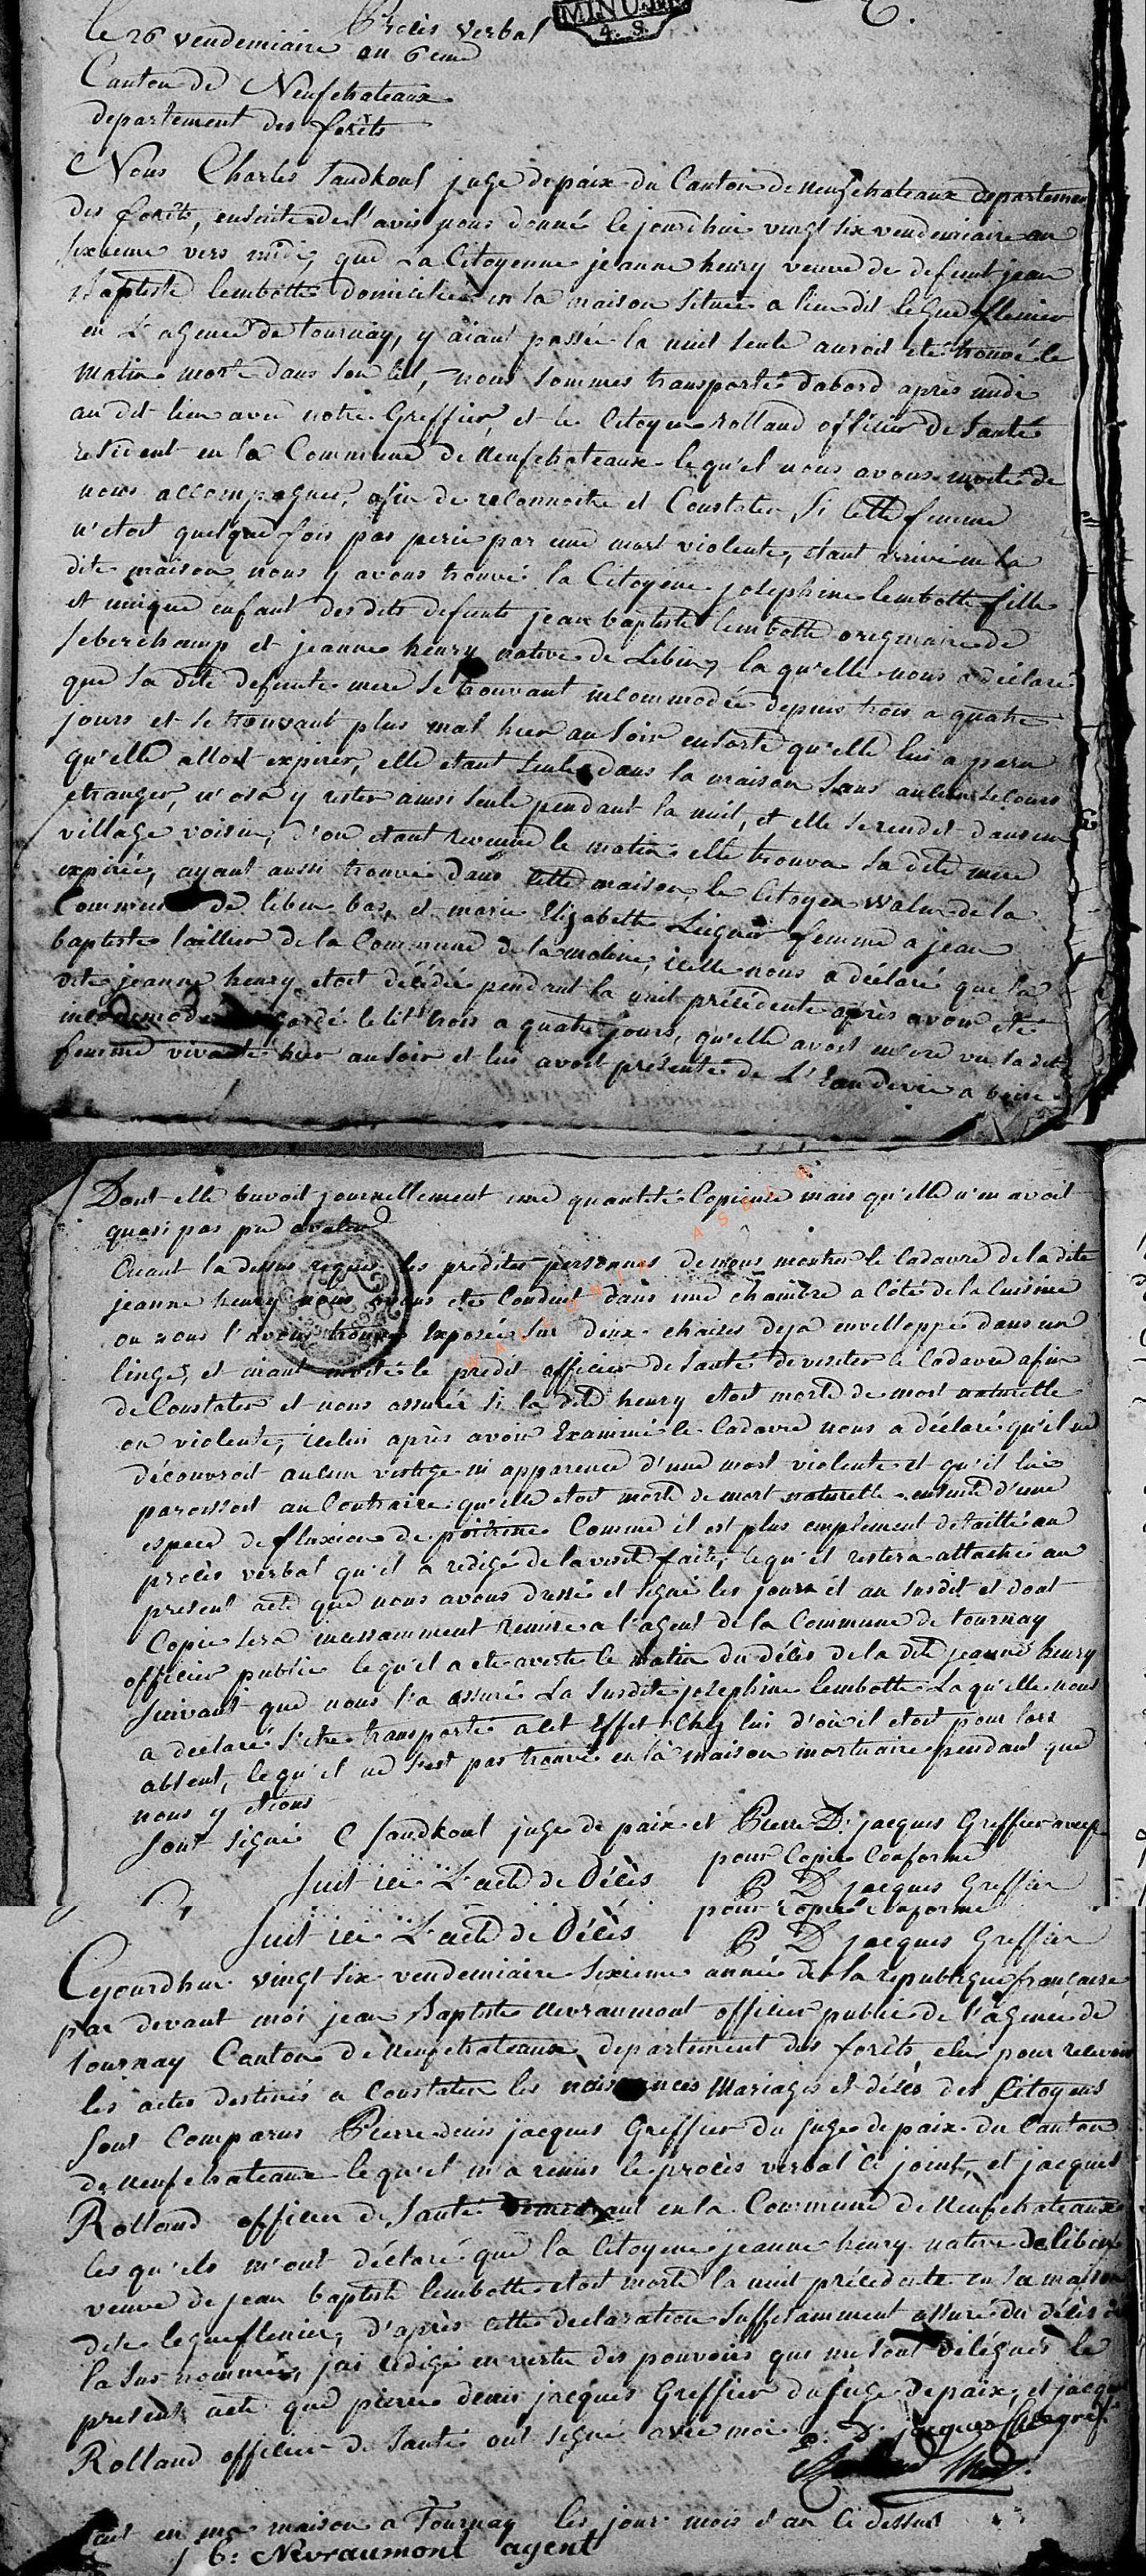 MINUTE
4. S.
Procès verbal
le 26 vendemiaire an 6eme
Canton de Neufchateaux
departement des forêts
Nous Charles Sandkoul juge de paix du Canton de neufchateaux departemen
des forêts, ensuite de l'avis nous donné le jourdhui vingt six vendemiaire an
sixieme vers midi, que La Citoyenne jeanne henry veuve de defunt jean
Baptiste lembotte domiciliée en la maison située a lieu dit legueflenier
en L'agence de tournay, y aiant passée la nuit seule auroit eté trouvé le
matin morte dans son lit, nous sommes transporté dabord après midi
au dit lieu avec notre Greffier, et le Citoyen rolland officier de santé
resident en la Commune de Neufchateaux lequ'el nous avons invité de
nous accompagner, afin de reconnoitre et Constater, si cette femme
n'etoit quelque fois pas perie par une mort violente, étant arrivé en la
dite maison, nous y avons trouvé la Citoyene josephine lembotte fille
et unique enfant desdits defunts jean baptiste lembotte originaire de
seberchamp et jeanne henry native de Libin, la qu'elle nous a déclaré
que sa dite defunte mere se trouvant incommodée depuis trois a quatre
jours et se trouvant plus mal hier au soir ensorte qu'elle lui a paru
qu'elle alloit expirer, elle etant seule dans la maison sans aucun secours
etranger, n'osa y rester ainsi seule pendant la nuit, et elle se rendit dans un
village voisin, d'ou etant revenue le matin elle trouva sa dite mere
expirée, ayant aussi trouvé dans cette maison le Citoyen walin de la
Commune de libin bas, et marie Elizabette Lieguer femme a jean
baptiste laillier de la Commune de lamoline, icelle nous a déclaré que la
dite jeanne henry etoit décédée pendant la nuit précédente après avoir eté
incommodée gardé le lit trois a quatre jours, qu'elle avoit encore vu la dite
femme vivante hier au soir et lui avoit presenté de L'Eau de vie a boire
Dont elle buvoit journellement une quantité Copieuse mais qu'elle n'en avoit
quasi pas pu avaler
Aiant la dessus requis les predites personnes de nous montrer le Cadavre de la dite
jeanne henry nous avons eté Conduit dans une chambre a Coté de la Cuisine
ou nous l'avons trouvé Exposée sur deux chaises deja envelloppé dans un
linge, et aiant invité le predit officier de santé de visiter le Cadavre afin
de Constater et nous assurer si la dite henry etoit morte de mort naturelle
ou violente, icelui après avoir Examiné le Cadavre nous a déclaré qu'il ne
découvroit aucun vestige ni apparence d'une mort violente et qu'il lui
paroissoit au Contraire qu'elle etoit morte de mort naturelle ensuite d'une
espece de fluxion de poitrine Comme il est plus amplement detaillé au
procès verbal qu'il a redigé de la visite faite, lequ'el restera attaché au
present acte que nous avons dressé et signé les jours et an susdit et dont
Copie sera incessamment remise a l'agent de la Commune de tournay
officier public lequ'el a eté averti le matin du décès de la dite jeanne henry
suivant que nous l'a assuré La susdite josephine lembotte Laqu'elle nous
a declaré s'etre transporté a cet Effet Chez lui d'où il etoit pour lors
absent, lequ'el ne s'est pas trouvé en la maison mortuaire pendant que
nous y etions
sont signé C Sandkoul juge de paix et Pierre D. jacques Greffier avec
pour Copie Conforme
Suit ici L'acte de Décès P D jacques Greffier
pour Copie Conforme
Suit ici L'acte de Décès P D jacques Greffier
Cejourdhui vingt six vendemiaire sixieme année de la republique françaises
par devant moi jean Baptiste Nevraumont officier public de l'agence de
tournay Canton de Neufchateaux, departement des forêts, elu pour recevoir
les actes destinés a Constater les naissances Mariages et décès des Citoyens
sont Comparus Pierre denis jacques Greffier du juge de paix du Canton
de neufchateaux lequ'el m'a remis le procès verbal Ci joint, et jacques
Rolland officier de Santé demeurant en la Commune de Neufchateaux
lesqu'els m'ont déclaré que la Citoyene jeanne henry native de libin
veuve de jean baptiste lembotte etoit morte la nuit précedente en sa maison
dite legueflenier, d'après cette declaration suffisamment assuré du décès de
la sus nommée, jai redigé en vertu des pouvoirs qui me sont délégués le
present acte que pierre denis jacques Greffier du juge de paix, et jacques
Rolland officier de Santé ont signé avec moi P. D. jacques
fait en ma maison a Tournay les jour mois et an Ci dessus
J b: Nevraumont agent